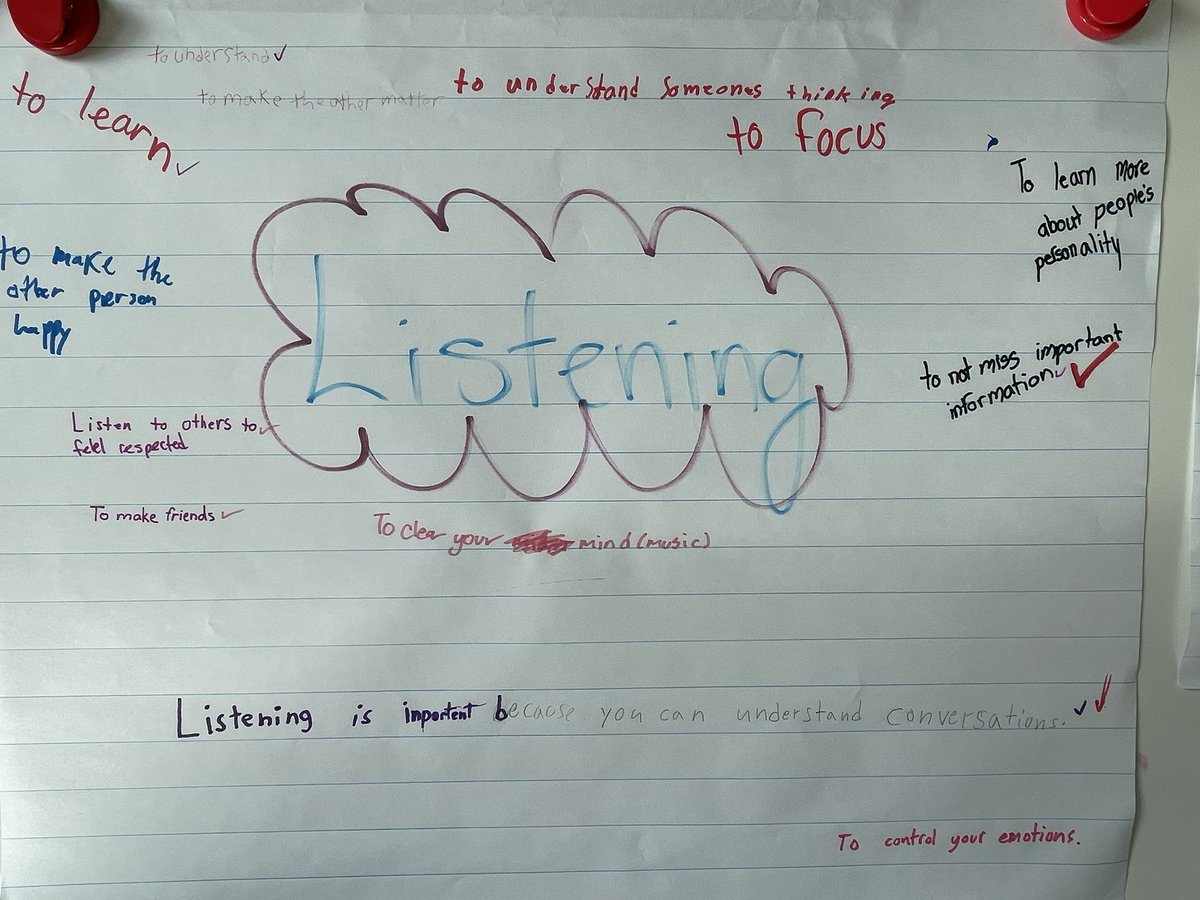 to understand
to make the other matter
to learn
to understand someones thinking
to focus
To learn more
about people's
personality
to make the
other person
happy
Listening
to not miss important
information
Listen to others to
feel respected
To make friends
To clear your mind (music)
Listening is inportent because you can understand conversations.
To control your emotions.